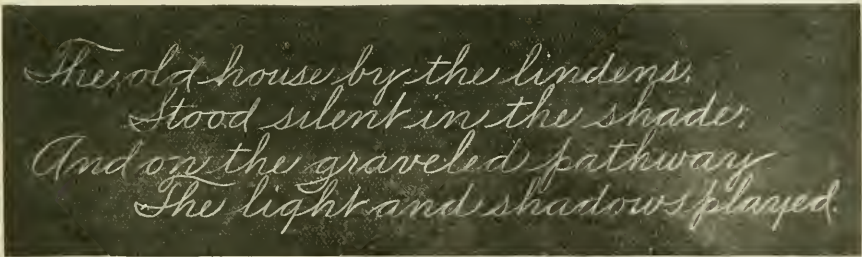 The old house by the lindens.
Stood silent in the shade;
And on the graveled pathway
The light and shadows played.